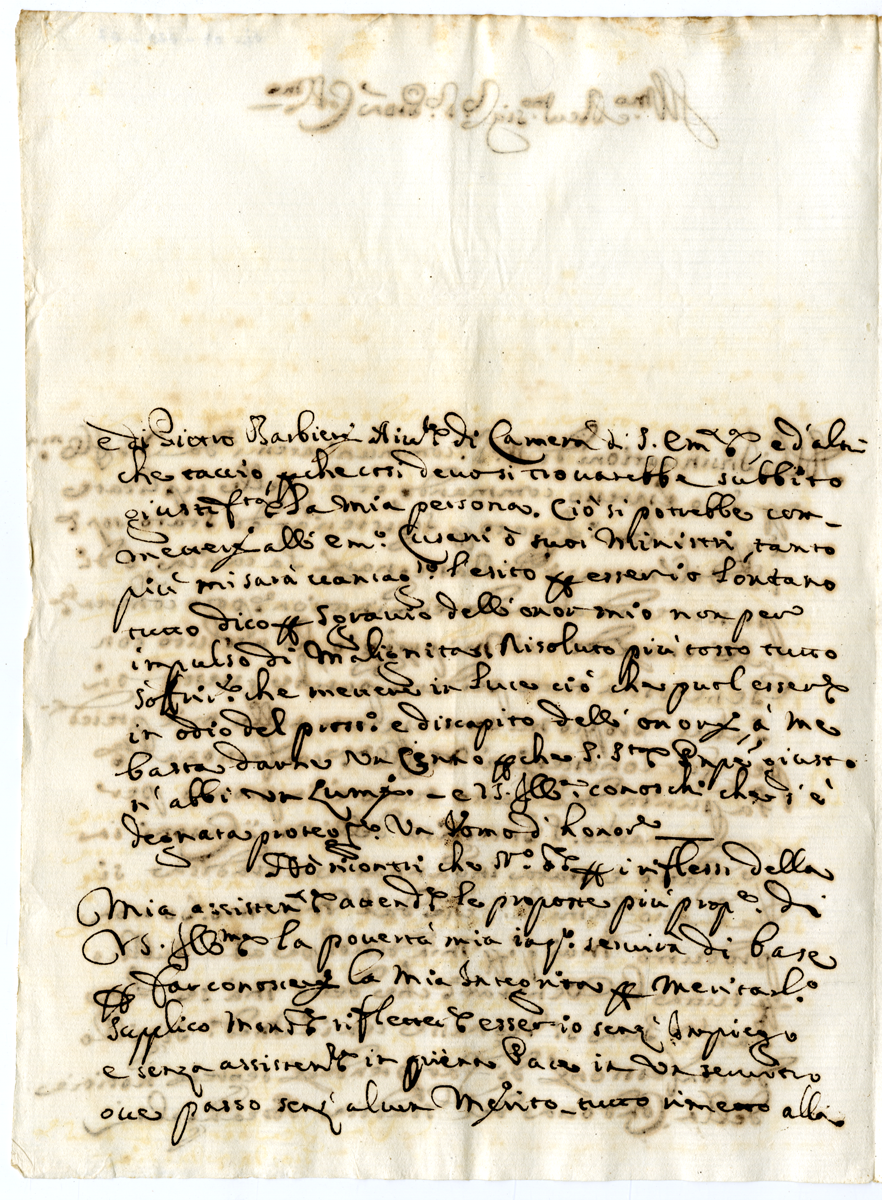 e di Pietro Barbieri Aiut.e di Camera di S. Em.za, e d'altri
che taccio, perche così devosi trovarebbe subbito
giustif.ta la mia persona. Ciò si potrebbe com-
metter all' em.o Cusani ò suoi Ministri, tanto
più mi sarà vantag.so l'esito per esser io lontano
tutto dico per sgravio dell' onor mio non per
impulso di Malignità, Risoluto più tosto tutto
soffrir.e che metter in luce ciò che puol esser
in odio del pross.o e discapito dell' onor, à me
basta darne un Cenno perche S. S.tà giusto
n' abbi un Lume. - e VS. Ill.ma conoschi che s'è
degnata protegg.e Un Uomo d' honore
Hò riscontri che per i riflessi della
Mia assisten attend le proposte più prop.e di
VS. Ill.ma la povertà mia servirà di base
per far conoscer la Mia Integrità per Meritarl.o
Supplico riflettere esser io senz' Impiego
e senza assisten in Pace in un servitio
ove passo senz' alcun Merito - tutto rimetto alla